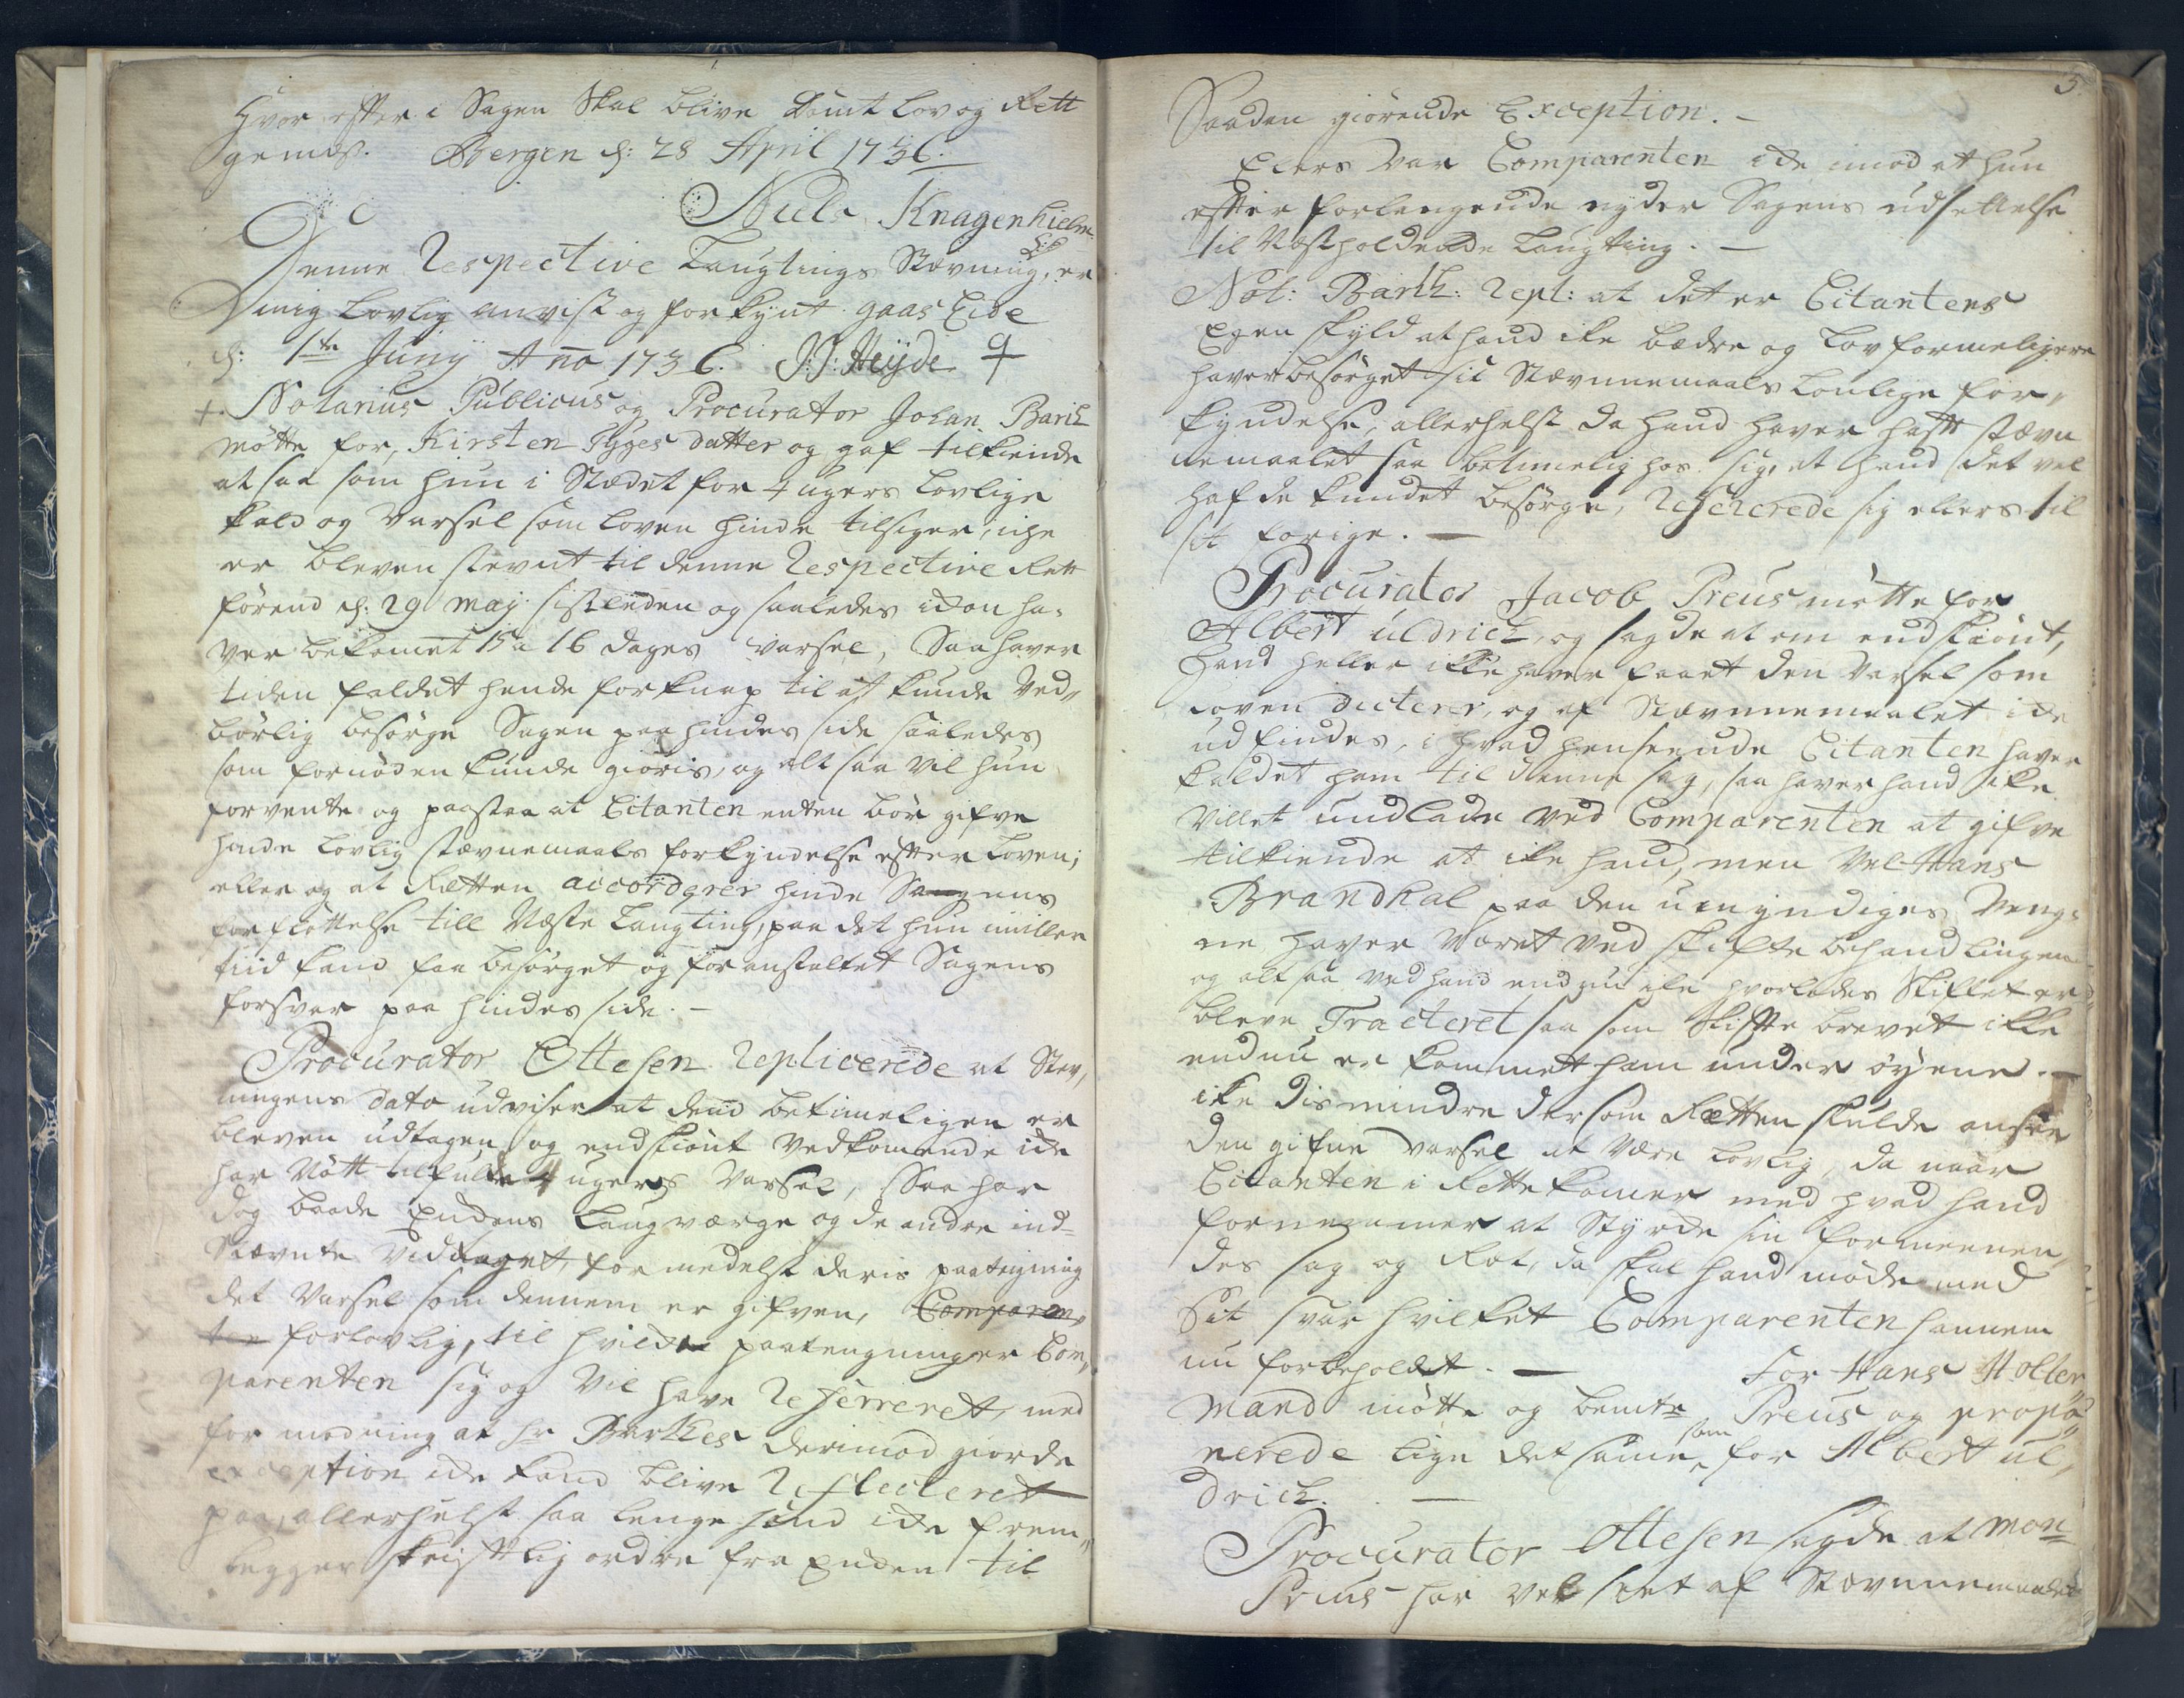 Hvor effter i Sagen Skal blive Dømt Lov og Rett
gemæs. Bergen d: 28 April 1736.
Niels Knagenhielm
Denne Respective Laugtings Stævning, er
mig Lovlig anvist og forkynt gaas Eide
d: 1ste Junÿ Anno 1736. J:J: Heÿde
+ Notarius Publicus og Procurator Johan Barth
mötte for, Kirsten Tygges datter og gaf tilkiende
at saa som hun i Stædet for 4 ugers Lovlige
Kald og Varsel som Loven hinde tilsiger, iche
er bleven stevnt til denne Respective Rett
förend d: 29 maÿ sistleden og saaledes ickon ha-
ver bekomet 15 a 16 dages varsel, Saa haver
tiden faldet hende for knap til at kunde Ved,,
börlig besörge Sagen paa hindes side saaledes
som fornöden kunde giöris, og alt saa vil hun
forvente og paastaa at Citanten enten bör gifve
hinde Lovlig stævnemaals forkyndelse effter Loven;
eller og at Retten accorderer hinde Sagens
forfløttelse till Næste Laugting, paa det hun imiller
tiid kand faa besörget og foranstaltet Sagens
forsvar paa hindes side. -
Procurator Ottesen replicerede at Stev,,
ningens dato udviser at dend betimeligen er
bleven udtagen og endskiönt Vedkomende icke
har Nött tilfulde 4 ugers Varsel, Saa har
dog baade Enkens Laugværge og de andre ind-
stævnte vidtaget, formedelst deris paateigning
det Varsel som dennem er gifven, Comparen,,
ten forlovlig, til hvilcke paategninger Com,,
parenten sig og Vil have Referreret, med
formodning at hr Barthes derimod giorde
exception icke kand blive reflecteret
paa, allerhelst saa lenge hand icke frem,,
legger skriftlig ordre fra Enken til
3.
Saaden giörende Exception. -
Ellers var Comparenten icke imod at hun
effter forlangende nyder Sagens udsettelse
til Næstholdende Laugting. -
Not: Barth: repl: at det er Citantens
Egen skyld at hand icke bædre og Lovformeligere
haver besörget sit Stævnnemaals Lovlige for,,
kyndelse, allerhelst da hand haver hafft stævn
nemaalet saa betimelig hos sig, at hand det vel
hafde kundet besörge, refererede sig ellers til
sit forige. -
Procurator Jacob Preus mötte for
Albert uldrich, og sagde at om endskiönt,
hand heller ikke haver faaet den Varsel som
Loven dicterer, og af Stævnnemaalet icke
udfindes, i hvad henseende Citanten haver
kaldet ham til denne sag, saa haver hand icke
villet undlade ved Comparenten at gifve
tilkiende at icke hand, men Vel Hans
Brandkal paa den umyndiges Veng-
ne haver været ved skifte behandlingen
og alt saa ved hand endnu icke hvorledes Skiftet er
bleve Tracteret saa som Skifte brevet ikke
endnu er kommet ham under öyene. -
icke dis mindre dersom Retten skulde ansee
den gifne varsel at være Lovlig, da naar
Citanten i Rette kommer med hvad hand
fornemmer at Styrcke sin formeenen,,
des sag og Ret, da skal hand möde med
Sit svar hvilket Comparenten hannem
nu forbeholdt. - For Hans Holler,,
mand mötte og bemte Preus og propo,,
nerede lige det samme som for Albert ul,,
drich. -
Procurator Ottesen sagde at mon
Preus har vel seet af Stævnnemaalet